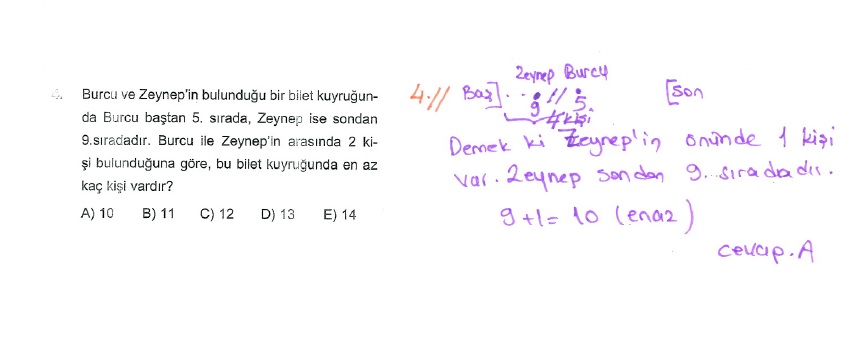 4. Burcu ve Zeynep'in bulunduğu bir bilet kuyruğun-
da Burcu baştan 5. sırada, Zeynep ise sondan
9.sıradadır. Burcu ile Zeynep'in arasında 2 ki-
şi bulunduğuna göre, bu bilet kuyruğunda en az
kaç kişi vardır?
A) 10 B) 11 C) 12 D) 13 E) 14
Zeynep Burcu
4.// Baş] . . // [son
9 5.
4 kişi
Demek ki Zeynep'in önünde 1 kişi
var. Zeynep sondan 9. sıradadır.
9+1= 10 (enaz)
cevap. A